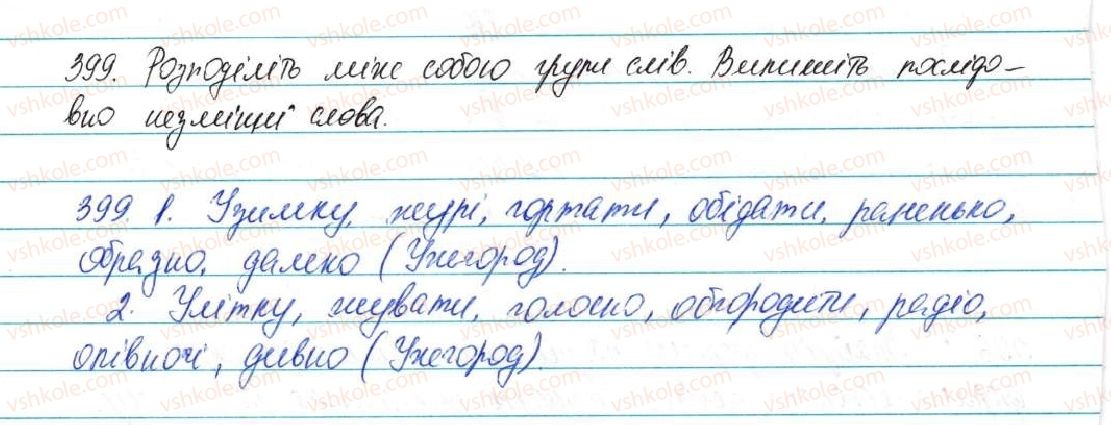 399. Розподіліть між собою групи слів. Випишіть послідо-
вно незмінні слова.
399. 1. Узимку, журі, гортати, обідати, раненько,
образно, далеко (Ужегород).
2. Улітку, жувати, голосно, обгородити, радіо,
опівночі, дивно (Ужегород).